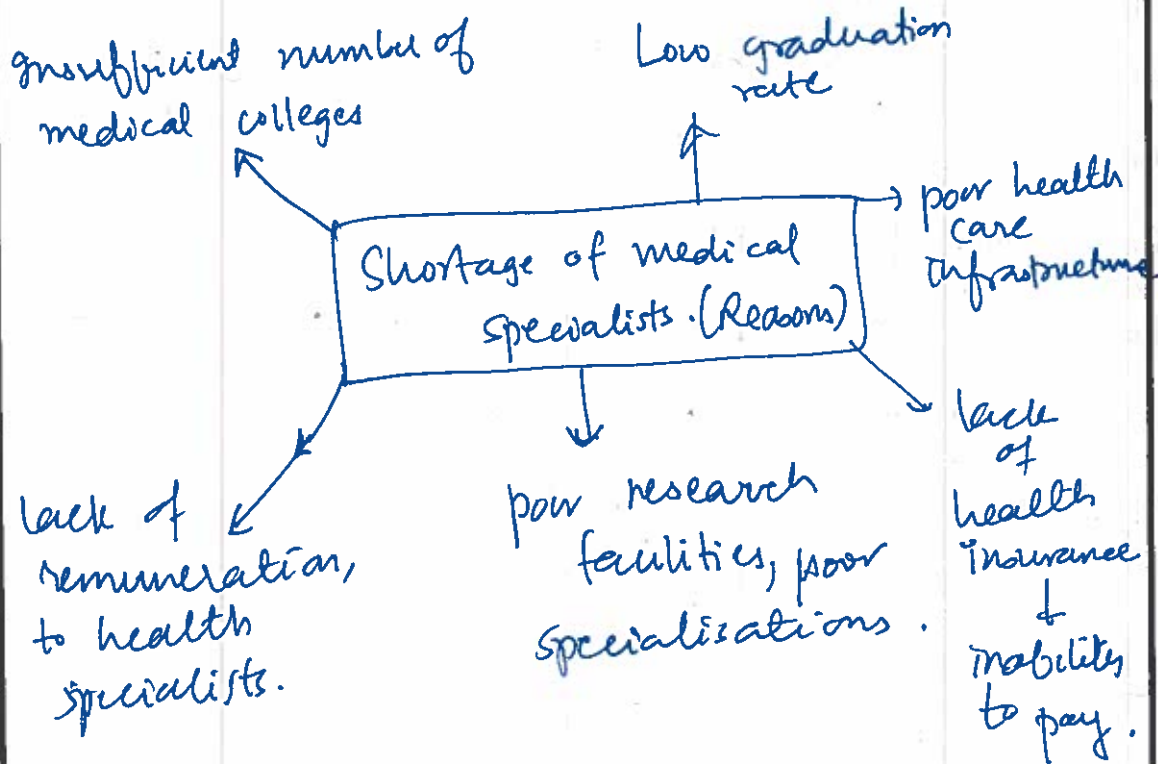 Insufficient number of
medical colleges
Low graduation
rate
poor health
care
infrastructure
Shortage of medical
specialists. (Reasons)
lack of
remuneration,
to health
specialists.
poor research
facilities, poor
specialisations.
lack
of
health
insurance
↓
inability
to pay.